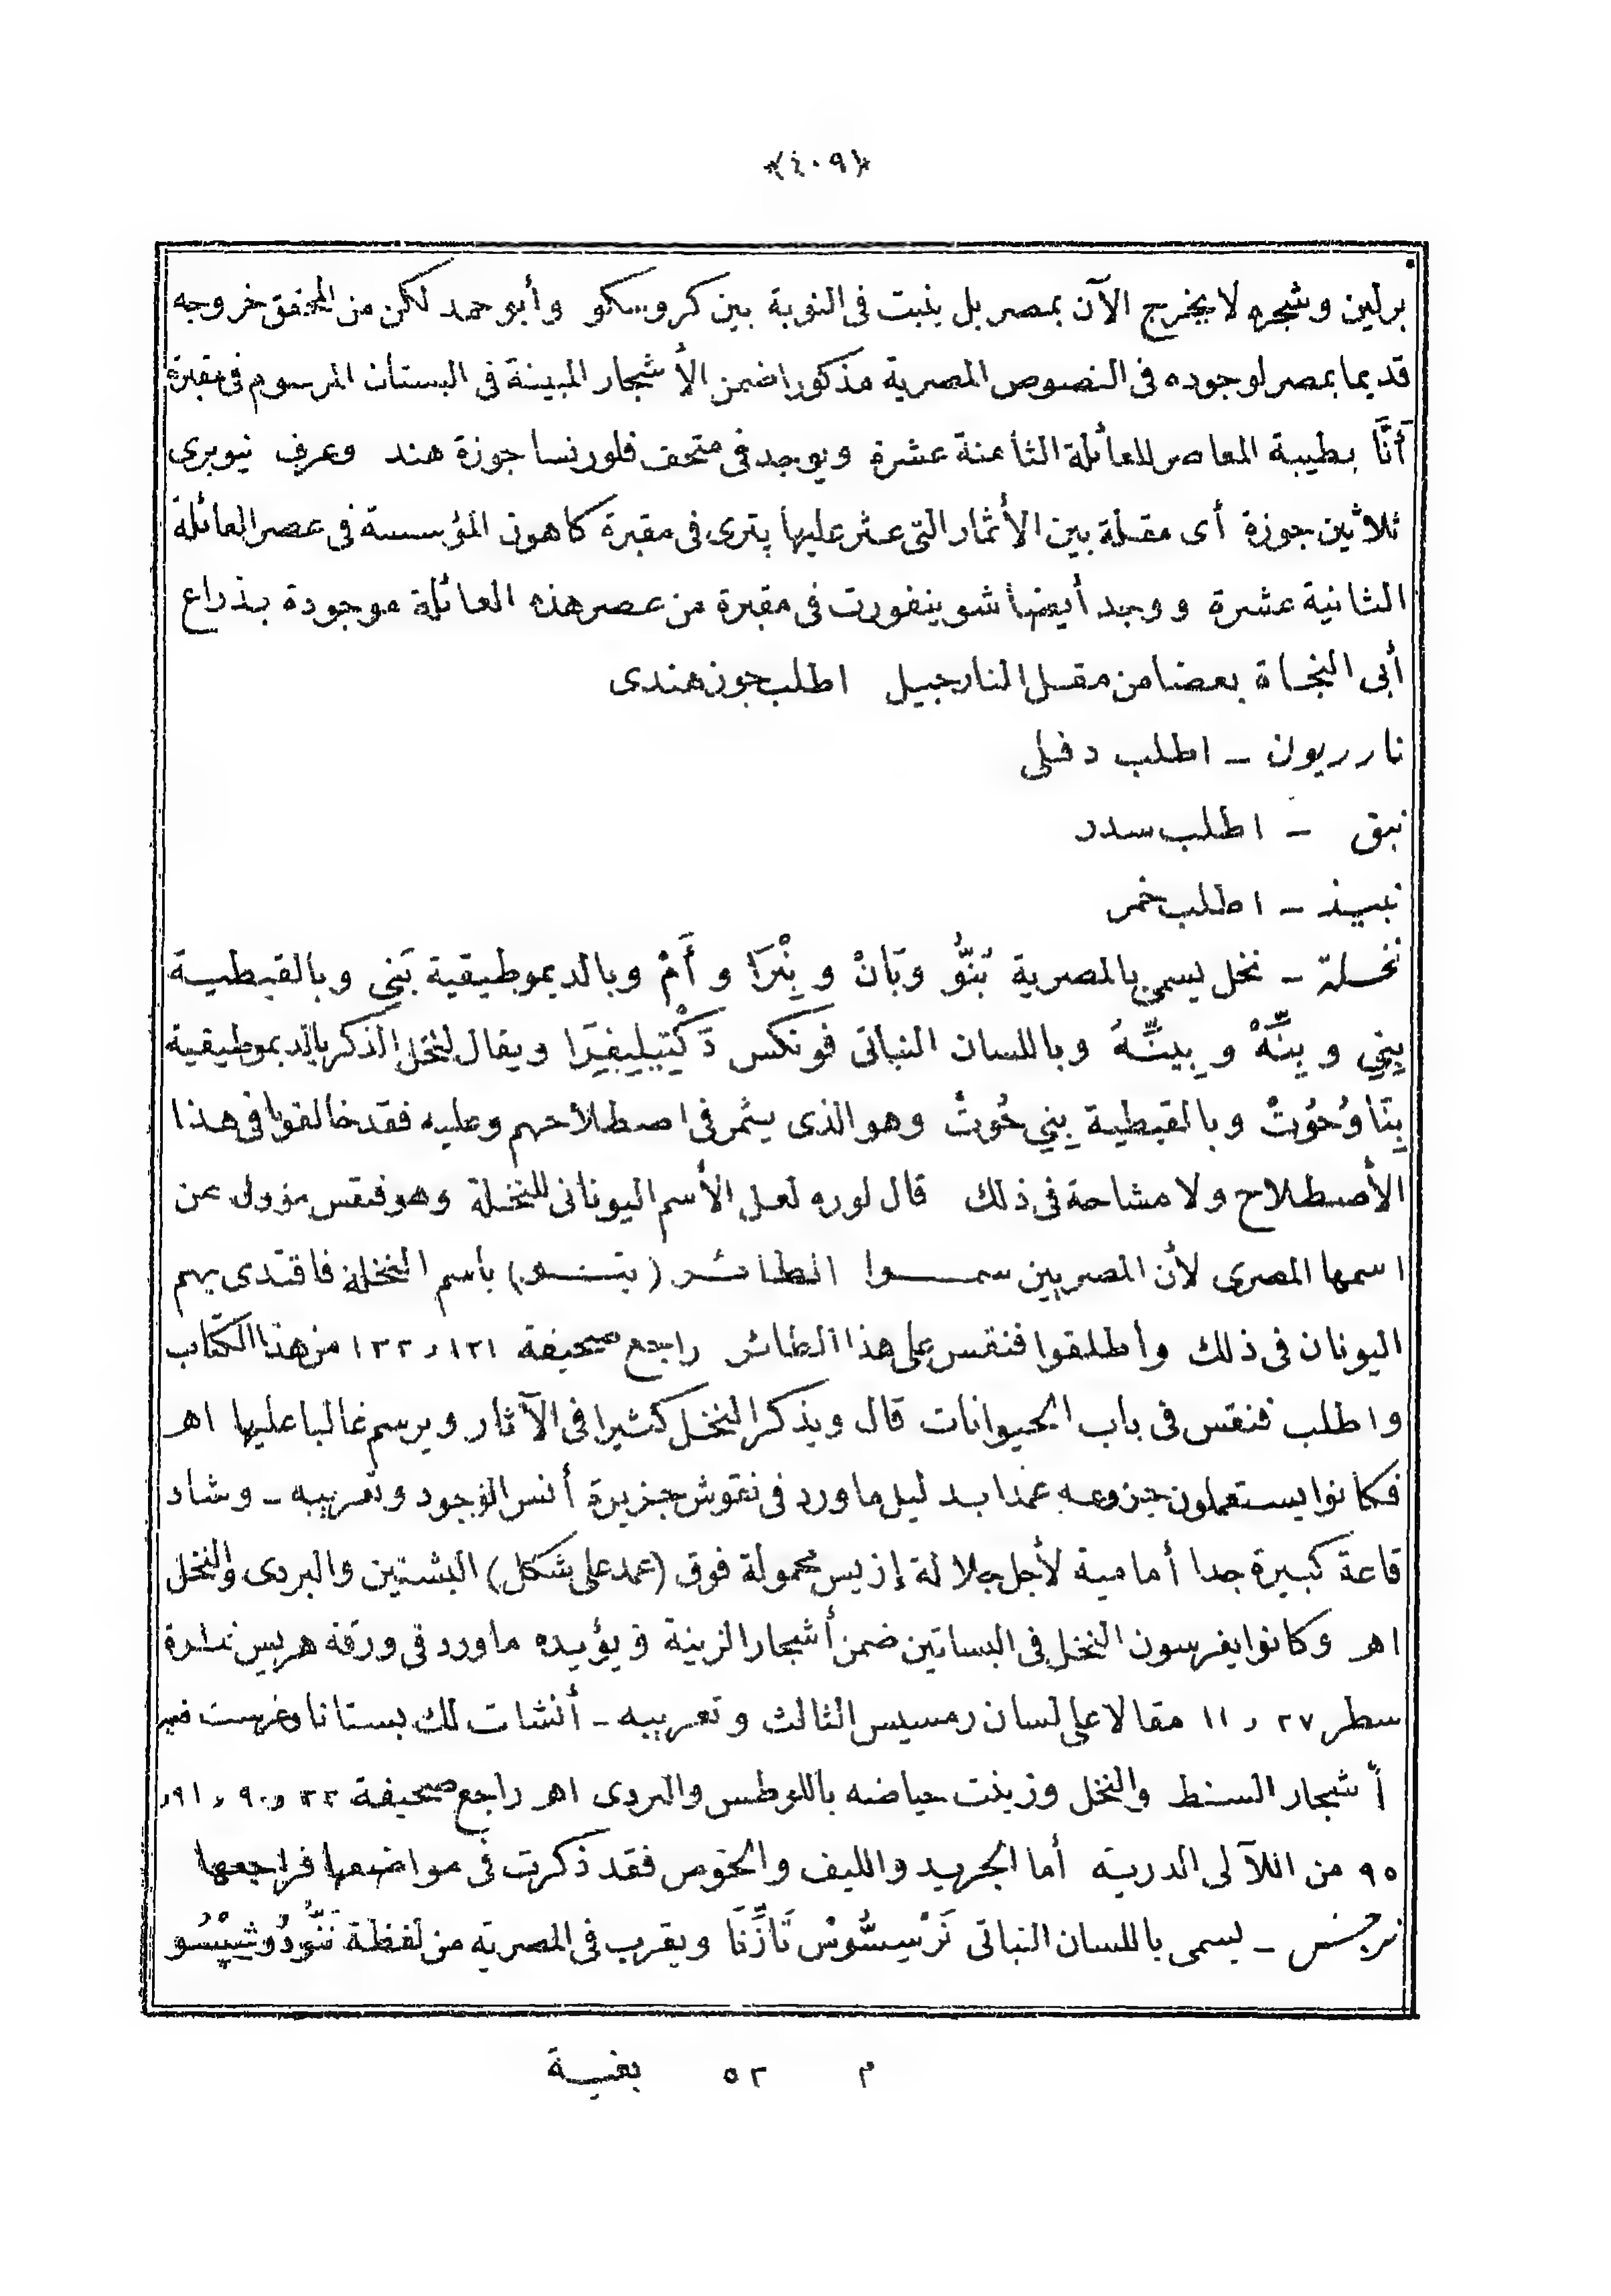 ﴿٤٠٩﴾
برلين وشجره لا يخرج الآن بمصر بل ينبت فى النوبة بين كروسكو وأبو حمد لكن من المحقق خروجه
قديما بمصر لوجوده فى النصوص المصرية مذكورا ضمن الأشجار المبينة فى البستان المرسوم فى مقبرة
آنَّا بطيبة المعاصر للعائلة الثامنة عشرة ويوجد فى متحف فلورنسا جوزة هند وعرف نيوبرى
ثلاثين جوزة أى مقلة بين الأثمار التى عثر عليها پترى فى مقبرة كاهون المؤسسة فى عصر العائلة
الثانية عشرة ووجد أيضا شوينفورت فى مقبرة من عصر هذه العائلة موجودة بذراع
أبى النجاة بعضا من مقل النارجيل اطلب جوز هندى
نارريون – اطلب دفلى
نبق – اطلب سدر
نبيذ – اطلب خمر
نخلة – نخل يسمى بالمصرية بُنُّو وَبَانْ و بِنْرَا و أَمْ وبالديموطيقية بَنِى وبالقبطية
بِنِي و بِنِّهْ و بِينِّهُ وباللسان النباتى فونكس دَكْتِيلِيفِرَا ويقال لنخل الذكر بالديموطيقية
بِنَاوُحُوُتْ وبالقبطية بِنِي حُوتْ وهو الذى يثمر فى اصطلاحهم وعليه فقد خالفوا فى هذا
الأصطلاح ولا مشاحة فى ذلك قال لوره لعل الأسم اليونانى للنخلة وهو فنقس مؤول عن
اسمها المصرى لأن المصريين سموا الطائر (بنو) بأسم النخلة فاقتدى بهم
اليونان فى ذلك وأطلقوا فنقس على هذا الطائر راجع صحيفة ١٢١ و ١٢٢ من هذا الكتاب
واطلب فنقس فى باب الحيوانات قال ويذكر النخل كثيرا فى الآثار ويرسم غالبا عليها اهـ
فكانوا يستعملون جزوعه عمدا بدليل ما ورد فى نقوش جزيرة أنس الوجود وتعريبه – وشاد
قاعة كبيرة جدا أمامية لأجل جلالة إزيس محمولة فوق (عمد على شكل) البشنين والبردى والنخل
اهـ وكانوا يغرسون النخل فى البساتين ضمن أشجار الزينة ويؤيده ما ورد فى ورقة هريس نمرة
سطر ٢٧ و ١١ مقالا على لسان رمسيس الثالث وتعريبه – أنشات لك بستانا وغرست فيه
أشجار السنط والنخل وزينت حياضه باللوطس والبردى اهـ راجع صحيفة ٢٢ و ٩٠ و ٩١ و
٩٥ من اللآلى الدرية أما الجريد والليف والخوص فقد ذكرت فى مواضعها فراجعها
نرجس – يسمى باللسان النباتى نَرْسِسُّوسْ تَازِّتَا ويقرب فى المصرية من لفظة
م ٥٢ بغية